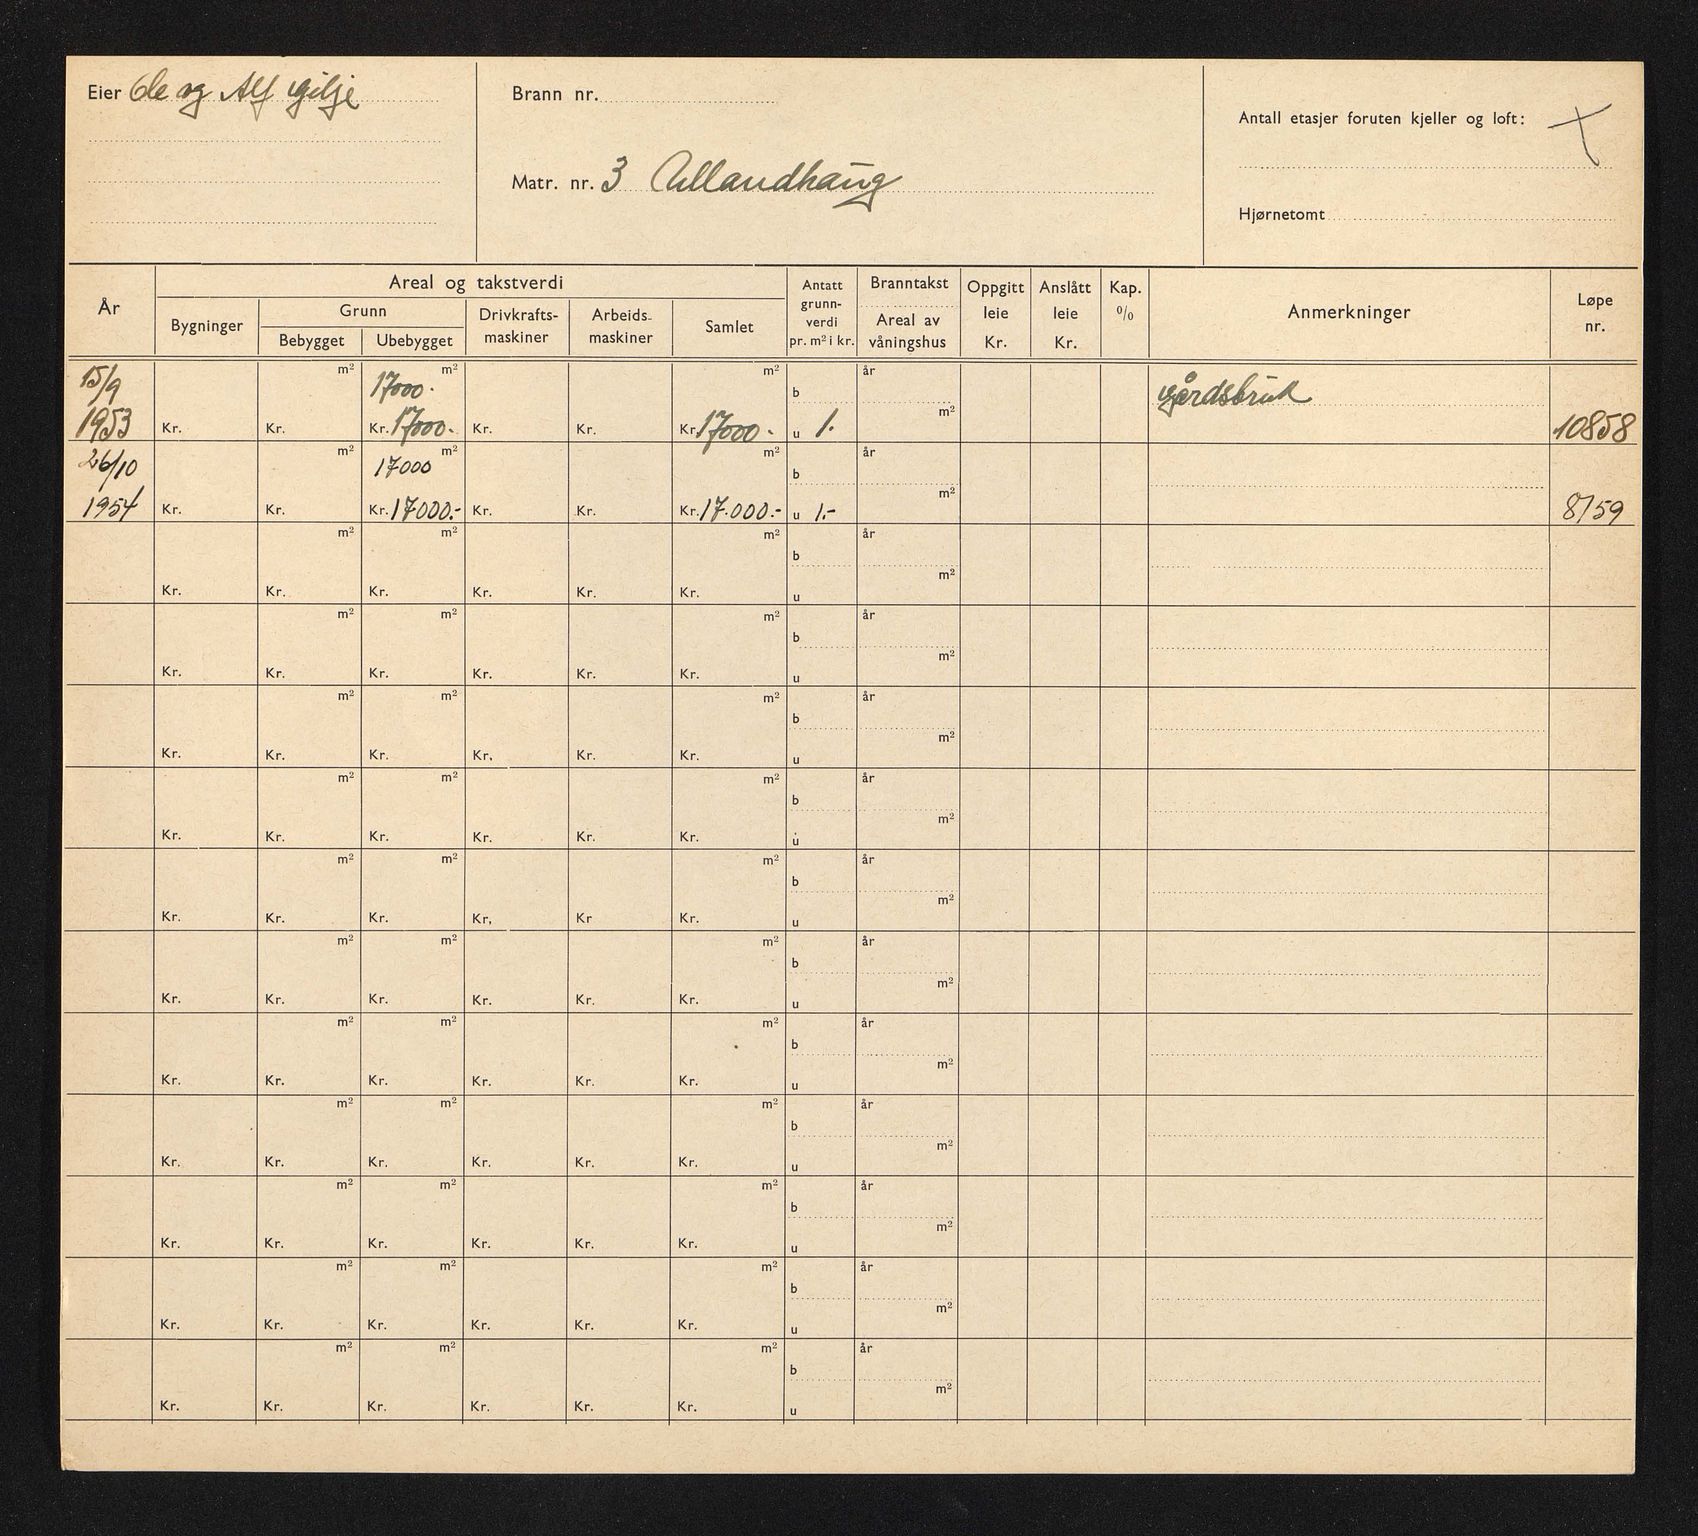 Eier Ole og Alf Gilje
Brann nr.
Matr. nr. 3 Ullandhaug
Antall etasjer foruten kjeller og loft:
Hjørnetomt
År
Areal og takstverdi
Bygninger
Grunn
Bebygget
Ubebygget
Drivkrafts-
maskiner
Arbeids-
maskiner
Samlet
Antatt
grunn-
verdi
pr. m² i kr.
Branntakst
Areal av
våningshus
Oppgitt
leie
Kr.
Anslått
leie
Kr.
Kap.
%
Anmerkninger
Løpe
nr.
15/9 m² 17000.- m² m² b år Gårdsbruk
1953 Kr. Kr. Kr. 17000.- Kr. Kr. Kr. 17000.- u 1.- m² 10858
26/10 m² 17000 m² m² b år
1954 Kr. Kr. Kr. 17000.- Kr. Kr. Kr. 17.000.- u 1.- m² 8159
m² m² m² b år
Kr. Kr. Kr. Kr. Kr. Kr. u m²
m² m² m² b år
Kr. Kr. Kr. Kr. Kr. Kr. u m²
m² m² m² b år
Kr. Kr. Kr. Kr. Kr. Kr. u m²
m² m² m² b år
Kr. Kr. Kr. Kr. Kr. Kr. u m²
m² m² m² b år
Kr. Kr. Kr. Kr. Kr Kr. u m²
m² m² m² b år
Kr. Kr. Kr. Kr. Kr. Kr. u m²
m² m² m² b år
Kr. Kr. Kr. Kr. Kr. Kr. u m²
m² m² m² b år
Kr. Kr. Kr. Kr. Kr. Kr. u m²
m² m² m² b år
Kr. Kr. Kr. Kr. Kr. Kr. u m²
m² m² m² b år
Kr. Kr. Kr. Kr. Kr. Kr. u m²
m² m² m² b år
Kr. Kr. Kr. Kr. Kr. Kr. u m²